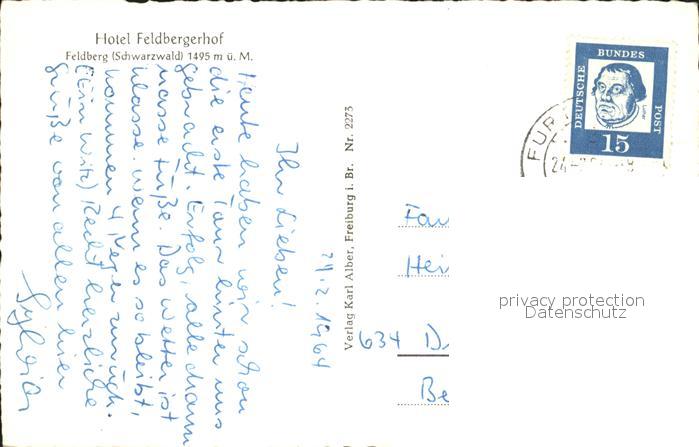 Hotel Feldbergerhof
Feldberg (Schwarzwald) 1495 m ü. M.
24.2.1964
Ihr Lieben!
Heute haben wir schon
die erste Tour hinter uns
gebracht. Erfolg: alle haben
nasse Füße. Das Wetter ist
klasse. Wenn es so bleibt,
kommen 4 Neger zurück.
(Ein Witz) Recht herzliche
Grüße von allen hier
Verlag Karl Alber, Freiburg i. Br. Nr. 2273
DEUTSCHE
BUNDES
POST
Luther
15
FUR
24-2
Fam
Hei
634 D
Be
privacy protection
Datenschutz